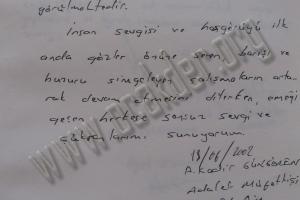 görülmektedir.
İnsan sevgisi ve hoşgörüyü ilk
anda gözler önüne seren, barışı ve
huzuru simgeleyen çalışmaların arta
rak devam etmesini dilerken, emeği
geçen herkese sonsuz sevgi ve
şükranlarımı sunuyorum.
13/06/2002
A. Kadir GÜNGÖREN
Adalet Müfettişi